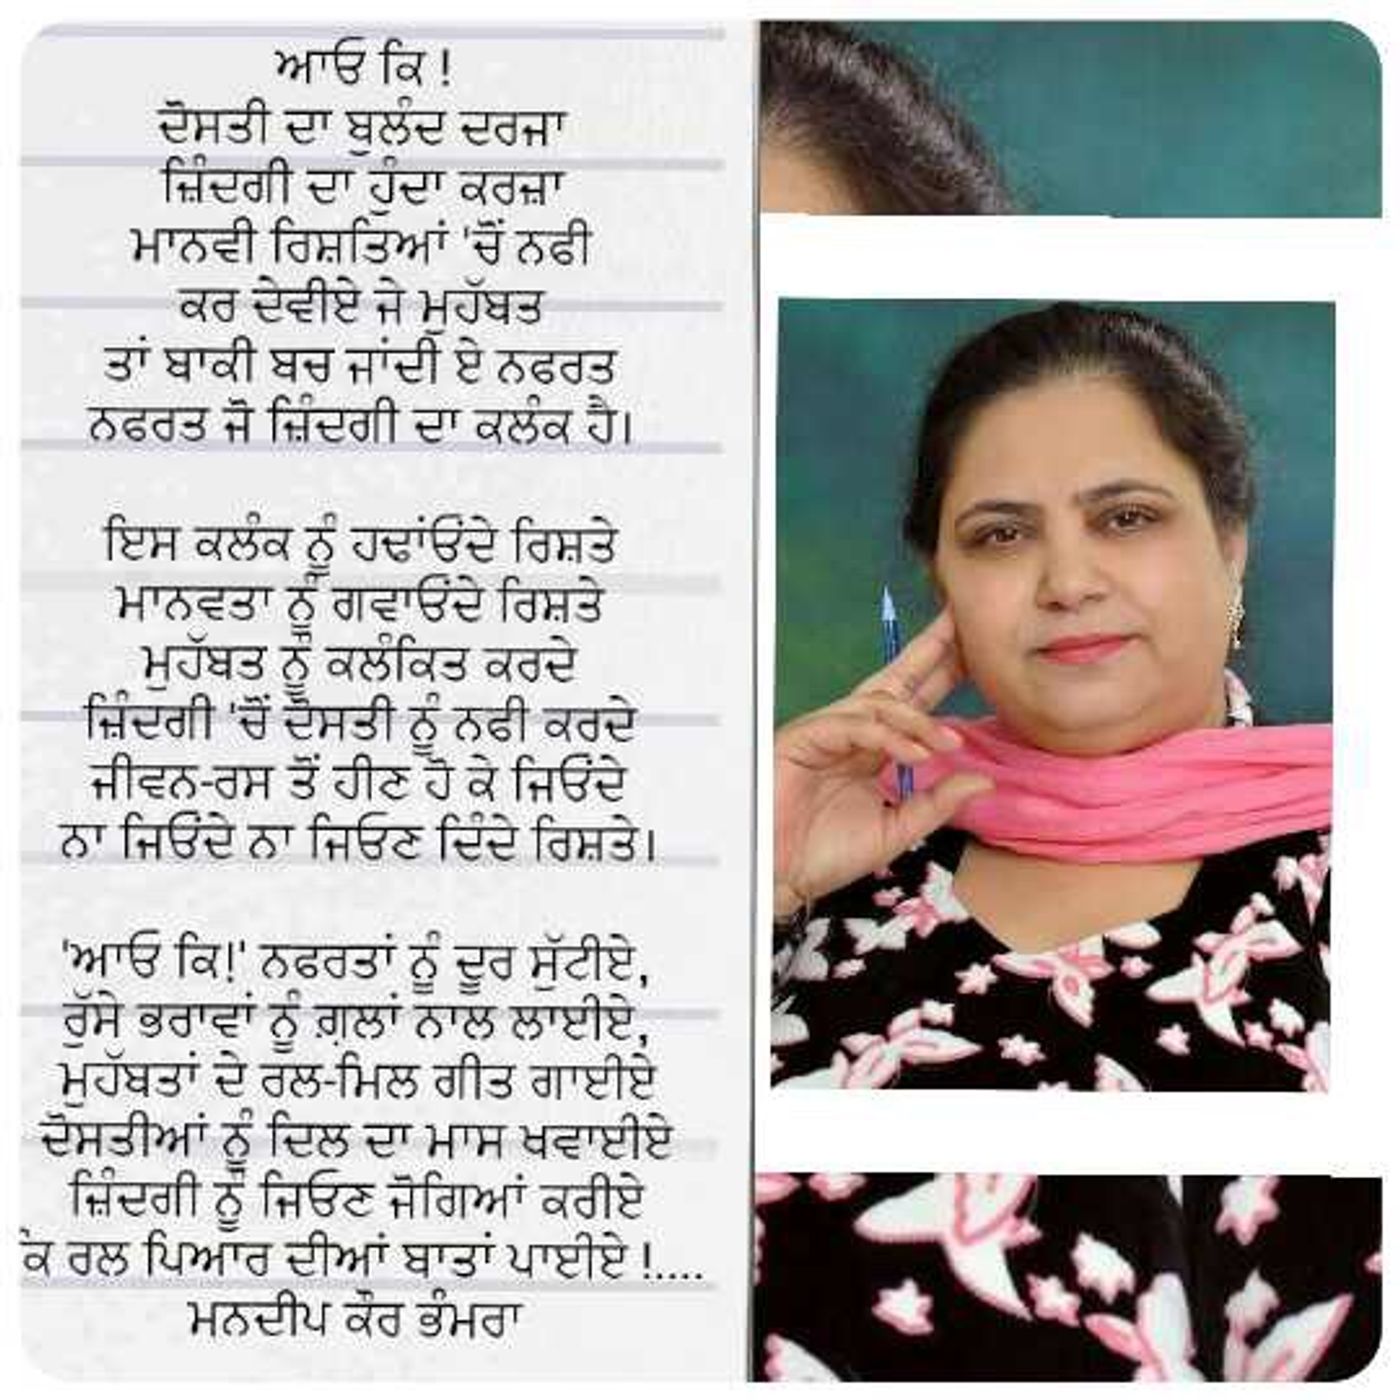 ਆਓ ਕਿ !
ਦੋਸਤੀ ਦਾ ਬੁਲੰਦ ਦਰਜਾ
ਜ਼ਿੰਦਗੀ ਦਾ ਹੁੰਦਾ ਕਰਜ਼ਾ
ਮਾਨਵੀ ਰਿਸ਼ਤਿਆਂ 'ਚੋਂ ਨਫੀ
ਕਰ ਦੇਵੀਏ ਜੇ ਮੁਹੱਬਤ
ਤਾਂ ਬਾਕੀ ਬਚ ਜਾਂਦੀ ਏ ਨਫਰਤ
ਨਫਰਤ ਜੋ ਜ਼ਿੰਦਗੀ ਦਾ ਕਲੰਕ ਹੈ।
ਇਸ ਕਲੰਕ ਨੂੰ ਹਢਾਂਓਂਦੇ ਰਿਸ਼ਤੇ
ਮਾਨਵਤਾ ਨੂੰ ਗਵਾਓਂਦੇ ਰਿਸ਼ਤੇ
ਮੁਹੱਬਤ ਨੂੰ ਕਲੰਕਿਤ ਕਰਦੇ
ਜ਼ਿੰਦਗੀ 'ਚੋਂ ਦੋਸਤੀ ਨੂੰ ਨਫੀ ਕਰਦੇ
ਜੀਵਨ-ਰਸ ਤੋਂ ਹੀਣ ਹੋ ਕੇ ਜਿਓਂਦੇ
ਨਾ ਜਿਓਂਦੇ ਨਾ ਜਿਓਣ ਦਿੰਦੇ ਰਿਸ਼ਤੇ।
'ਆਓ ਕਿ!' ਨਫਰਤਾਂ ਨੂੰ ਦੂਰ ਸੁੱਟੀਏ,
ਰੁੱਸੇ ਭਰਾਵਾਂ ਨੂੰ ਗ਼ਲਾਂ ਨਾਲ ਲਾਈਏ,
ਮੁਹੱਬਤਾਂ ਦੇ ਰਲ-ਮਿਲ ਗੀਤ ਗਾਈਏ
ਦੋਸਤੀਆਂ ਨੂੰ ਦਿਲ ਦਾ ਮਾਸ ਖਵਾਈਏ
ਜ਼ਿੰਦਗੀ ਨੂੰ ਜਿਓਣ ਜੋਗਿਆਂ ਕਰੀਏ
ਰਲ ਪਿਆਰ ਦੀਆਂ ਬਾਤਾਂ ਪਾਈਏ !....
ਮਨਦੀਪ ਕੌਰ ਭੰਮਰਾ